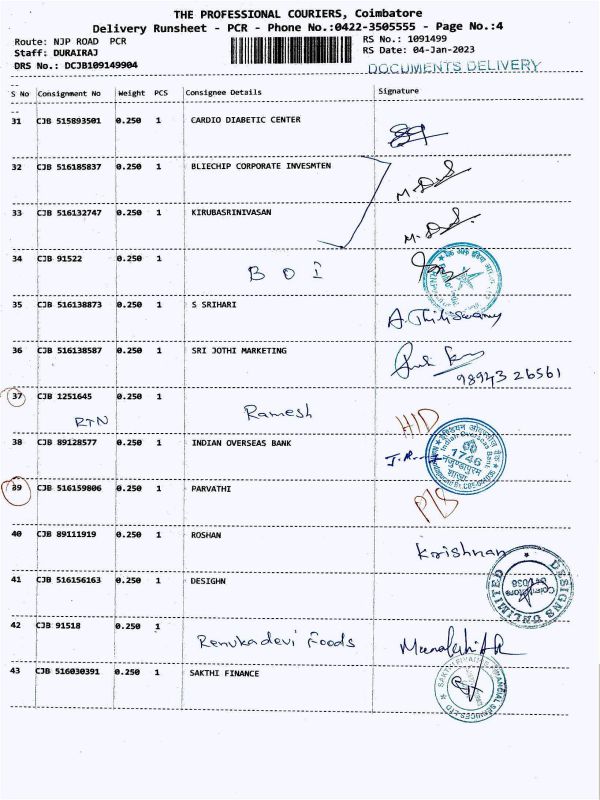 THE PROFESSIONAL COURIERS, Coimbatore
Delivery Runsheet - PCR - Phone No.:0422-3505555 - Page No.:4
Route: NJP ROAD PCR
RS No.: 1091499
Staff: DURAIRAJ
RS Date: 04-Jan-2023
DRS No.: DCJB109149904
DOCUMENTS DELIVERY
S No Consignment No Weight PCS Consignee Details Signature
31 CJB 515893501 0.250 1 CARDIO DIABETIC CENTER
32 CJB 516185837 0.250 1 BLIECHIP CORPORATE INVESMTEN
33 CJB 516132747 0.250 1 KIRUBASRINIVASAN
34 CJB 91522 0.250 1 BOI
35 CJB 516138873 0.250 1 S SRIHARI
36 CJB 516138587 0.250 1 SRI JOTHI MARKETING
98943 26561
37 CJB 1251645 0.250 1
RTN Ramesh H/D
38 CJB 89128577 0.250 1 INDIAN OVERSEAS BANK
Indian Overseas Bank
1746
39 CJB 516159806 0.250 1 PARVATHI
40 CJB 89111919 0.250 1 ROSHAN
Krishnan
41 CJB 516156163 0.250 1 DESIGHN
DESIGNS UNLIMITED
42 CJB 91518 0.250 1
Renukadevi Foods
43 CJB 516030391 0.250 1 SAKTHI FINANCE